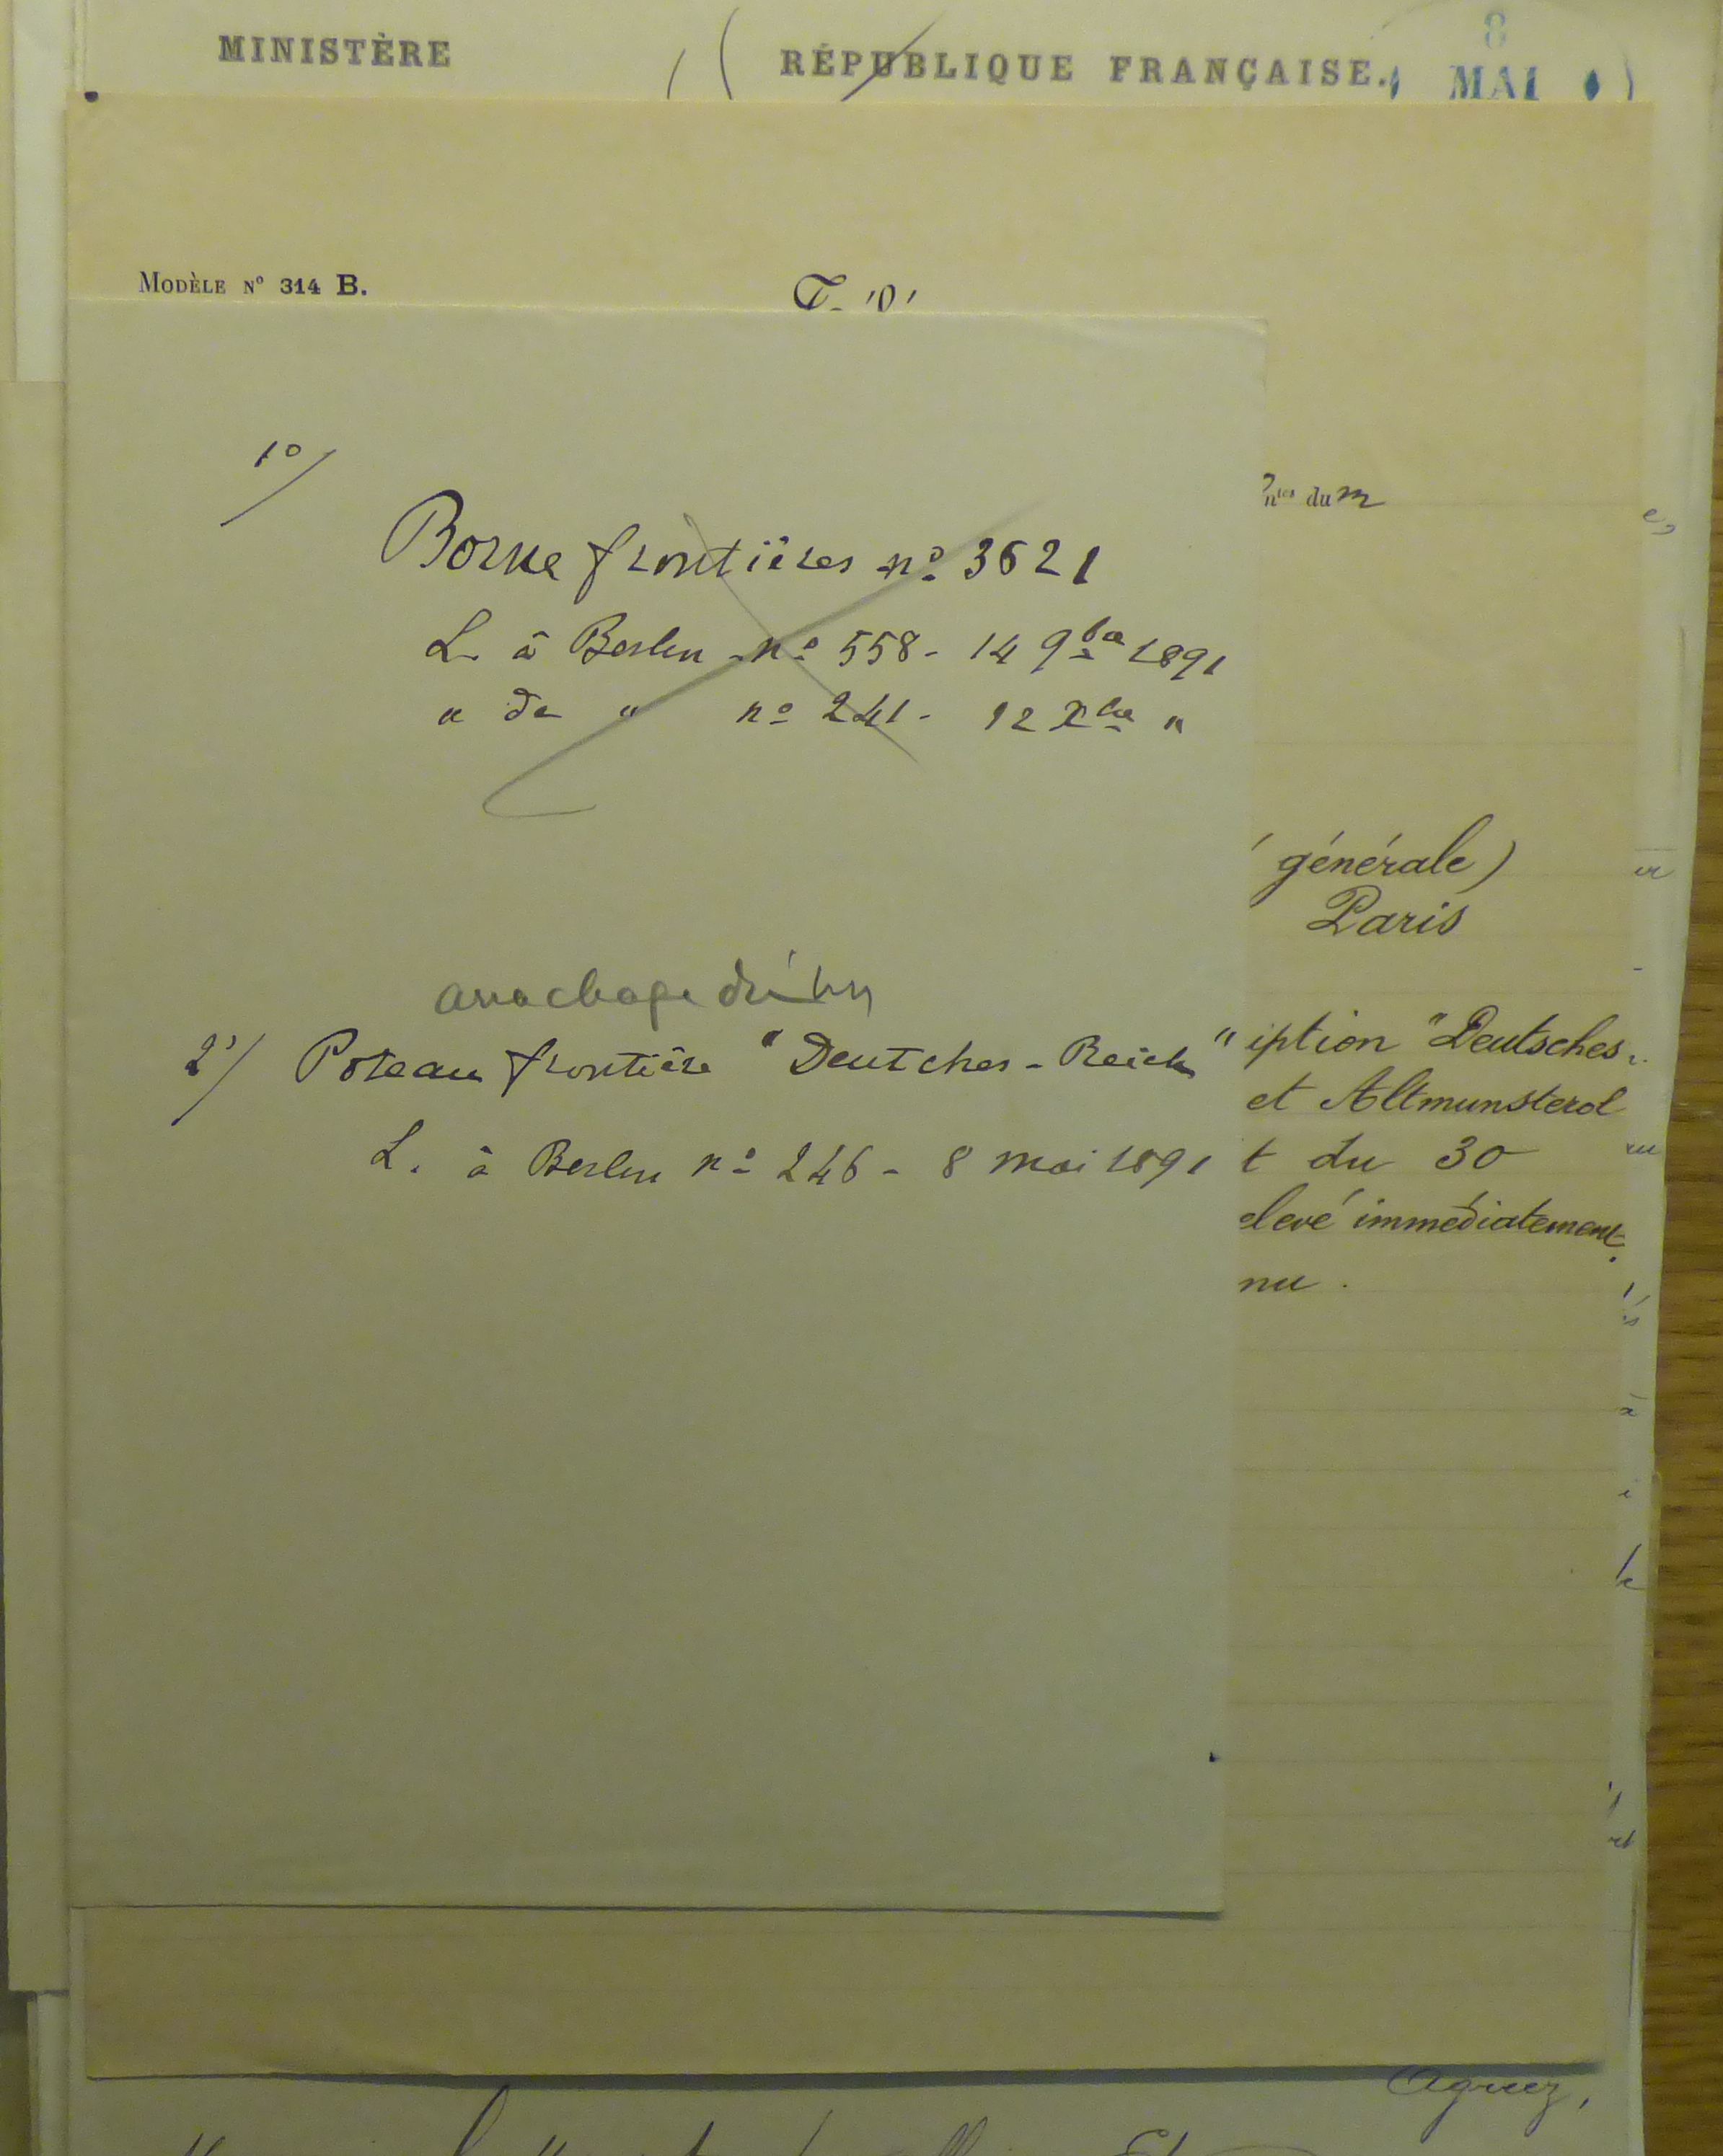 MINISTÈRE
RÉPUBLIQUE FRANÇAISE.
8
MAI
MODÈLE N° 314 B.
du m
1°/
Borne frontières n° 3621
L. à Berlin - n° 558 - 14 9bre 1891
" de " n° 241 - 12 Xbre "
générale)
Paris
arrachage d'un
2°/ Poteau frontière "Deutches-Reich"
L. à Berlin n° 246 - 8 mai 1891
iption "Deutsches
et Altmunsterol
t du 30
levé immédiatement.
nu.
Agréez,